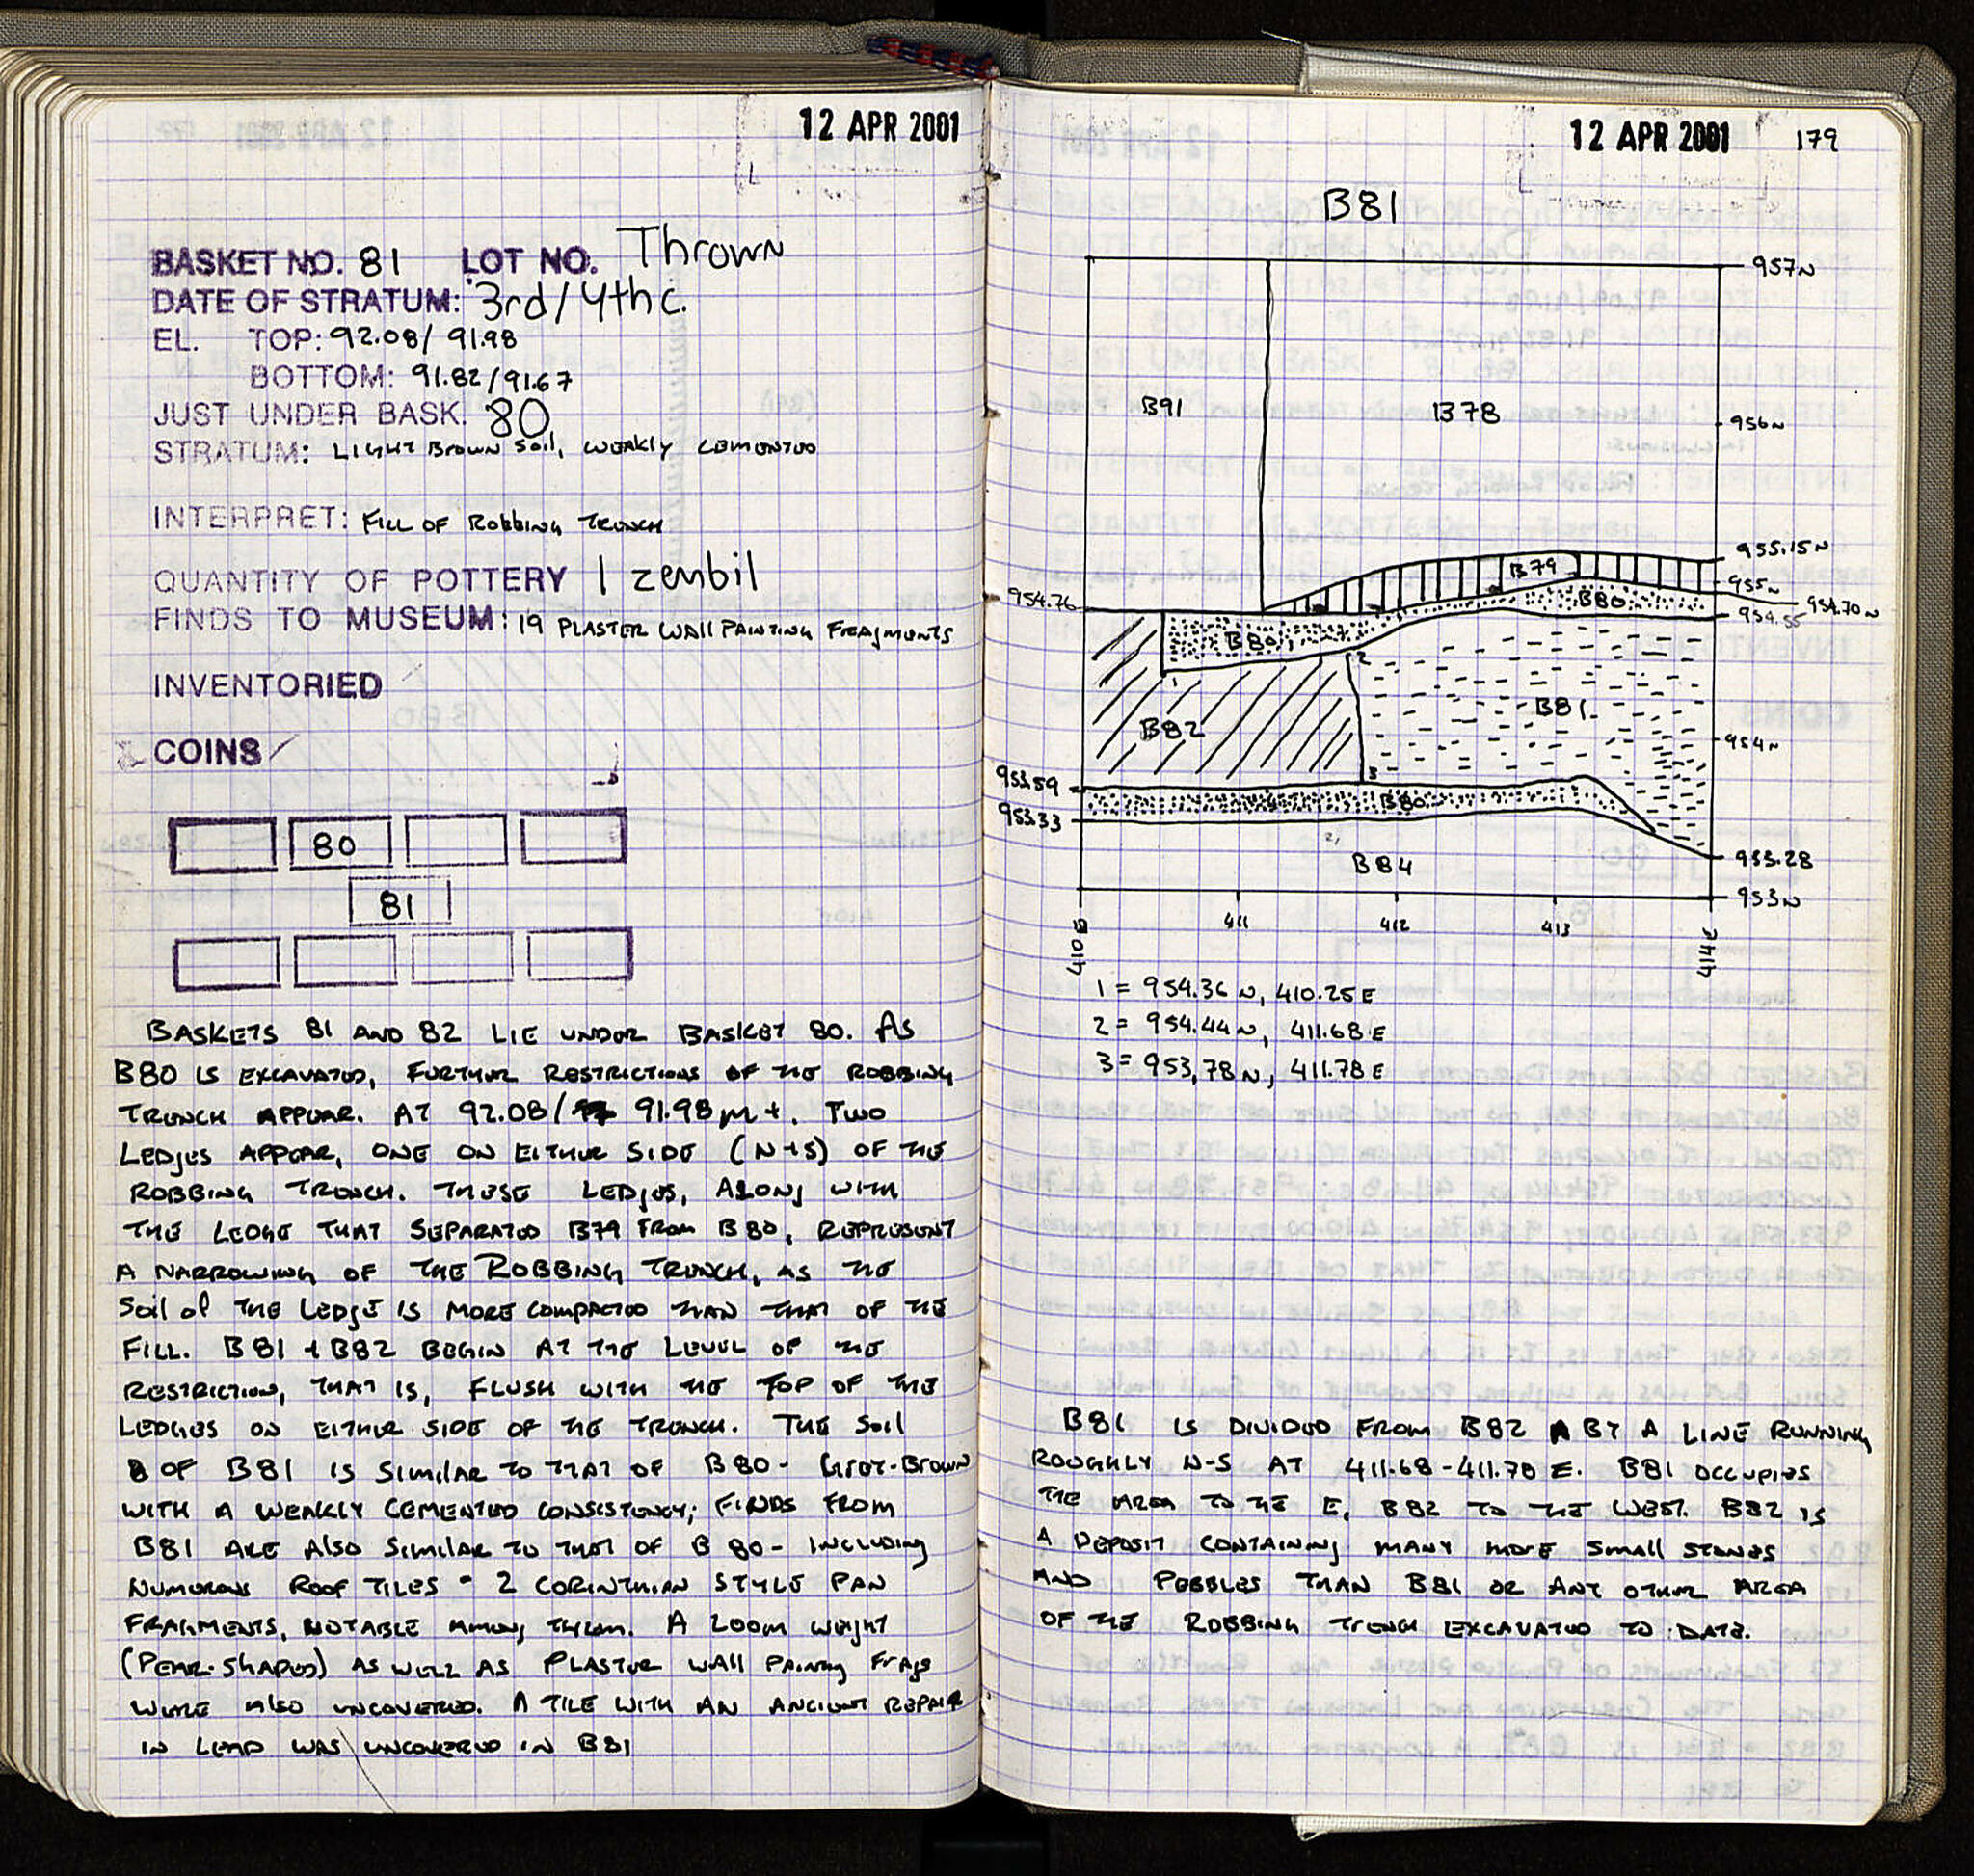 12 APR 2001
BASKET NO. 81 LOT NO. Thrown
DATE OF STRATUM: 3rd/4th c.
EL. TOP: 92.08/ 91.98
BOTTOM: 91.82/91.67
JUST UNDER BASK. 80
STRATUM: LIGHT BROWN SOIL, WEAKLY CEMENTED
INTERPRET: FILL OF ROBBING TRENCH
QUANTITY OF POTTERY 1 zembil
FINDS TO MUSEUM: 19 PLASTER WALL PAINTING FRAGMENTS
INVENTORIED
COINS
80
81
BASKETS 81 AND 82 LIE UNDER BASKET 80. AS
B80 IS EXCAVATED, FURTHER RESTRICTIONS OF THE ROBBING
TRENCH APPEAR. AT 92.08/ 91.98 m+. TWO
LEDGES APPEAR, ONE ON EITHER SIDE (N+S) OF THE
ROBBING TRENCH. THESE LEDGES, ALONG WITH
THE LEDGE THAT SEPARATED B79 FROM B80, REPRESENT
A NARROWING OF THE ROBBING TRENCH, AS THE
SOIL of THE LEDGE IS MORE COMPACTED THAN THAT OF THE
FILL. B81 + B82 BEGIN AT THE LEVEL OF THE
RESTRICTION, THAT IS, FLUSH WITH THE TOP OF THE
LEDGES ON EITHER SIDE OF THE TRENCH. THE SOIL
OF B81 IS SIMILAR TO THAT OF B80 - GREY-BROWN
WITH A WEAKLY CEMENTED CONSISTENCY; FINDS FROM
B81 ARE ALSO SIMILAR TO THAT OF B80 - INCLUDING
NUMEROUS ROOF TILES - 2 CORINTHIAN STYLE PAN
FRAGMENTS, NOTABLE AMONG THEM. A LOOM WEIGHT
(PEAR-SHAPED) AS WELL AS PLASTER WALL PAINTING FRAGS
WERE ALSO UNCOVERED. A TILE WITH AN ANCIENT REPAIR
IN LEAD WAS UNCOVERED IN B81
12 APR 2001 179
B81
957N
B91
B78
956N
955.15N
B79
955N
B80
954.70N
954.76
954.55
B80
1
2
B82
B81
954N
3
953.59
B80
953.33
B84
953.28
953N
410E
411
412
413
414E
1 = 954.36 N, 410.25 E
2 = 954.44 N, 411.68 E
3 = 953,78 N, 411.78 E
B81 IS DIVIDED FROM B82 BY A LINE RUNNING
ROUGHLY N-S AT 411.68-411.78 E. B81 OCCUPIES
THE AREA TO THE E, B82 TO THE WEST. B82 IS
A DEPOSIT CONTAINING MANY MORE SMALL STONES
AND PEBBLES THAN B81 OR ANY OTHER AREA
OF THE ROBBING TRENCH EXCAVATED TO DATE.